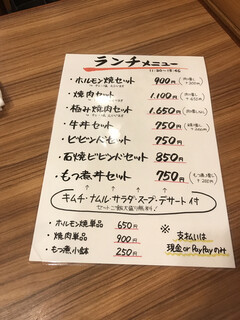 ランチメニュー
11:30〜13:45
・ホルモン焼セット 900円
・焼肉セット 1.100円
・極み焼肉セット 1.650円
・牛丼セット 750円
・ビビンバセット 750円
・石焼ビビンバセット 850円
・もつ煮丼セット 750円
キムチ・ナムル・サラダ・スープ・デザート付
セットご飯大盛り無料!
・ホルモン焼単品 650円
・焼肉単品 900円
・もつ煮小鉢 250円
※ 支払いは
現金 or PayPayのみ